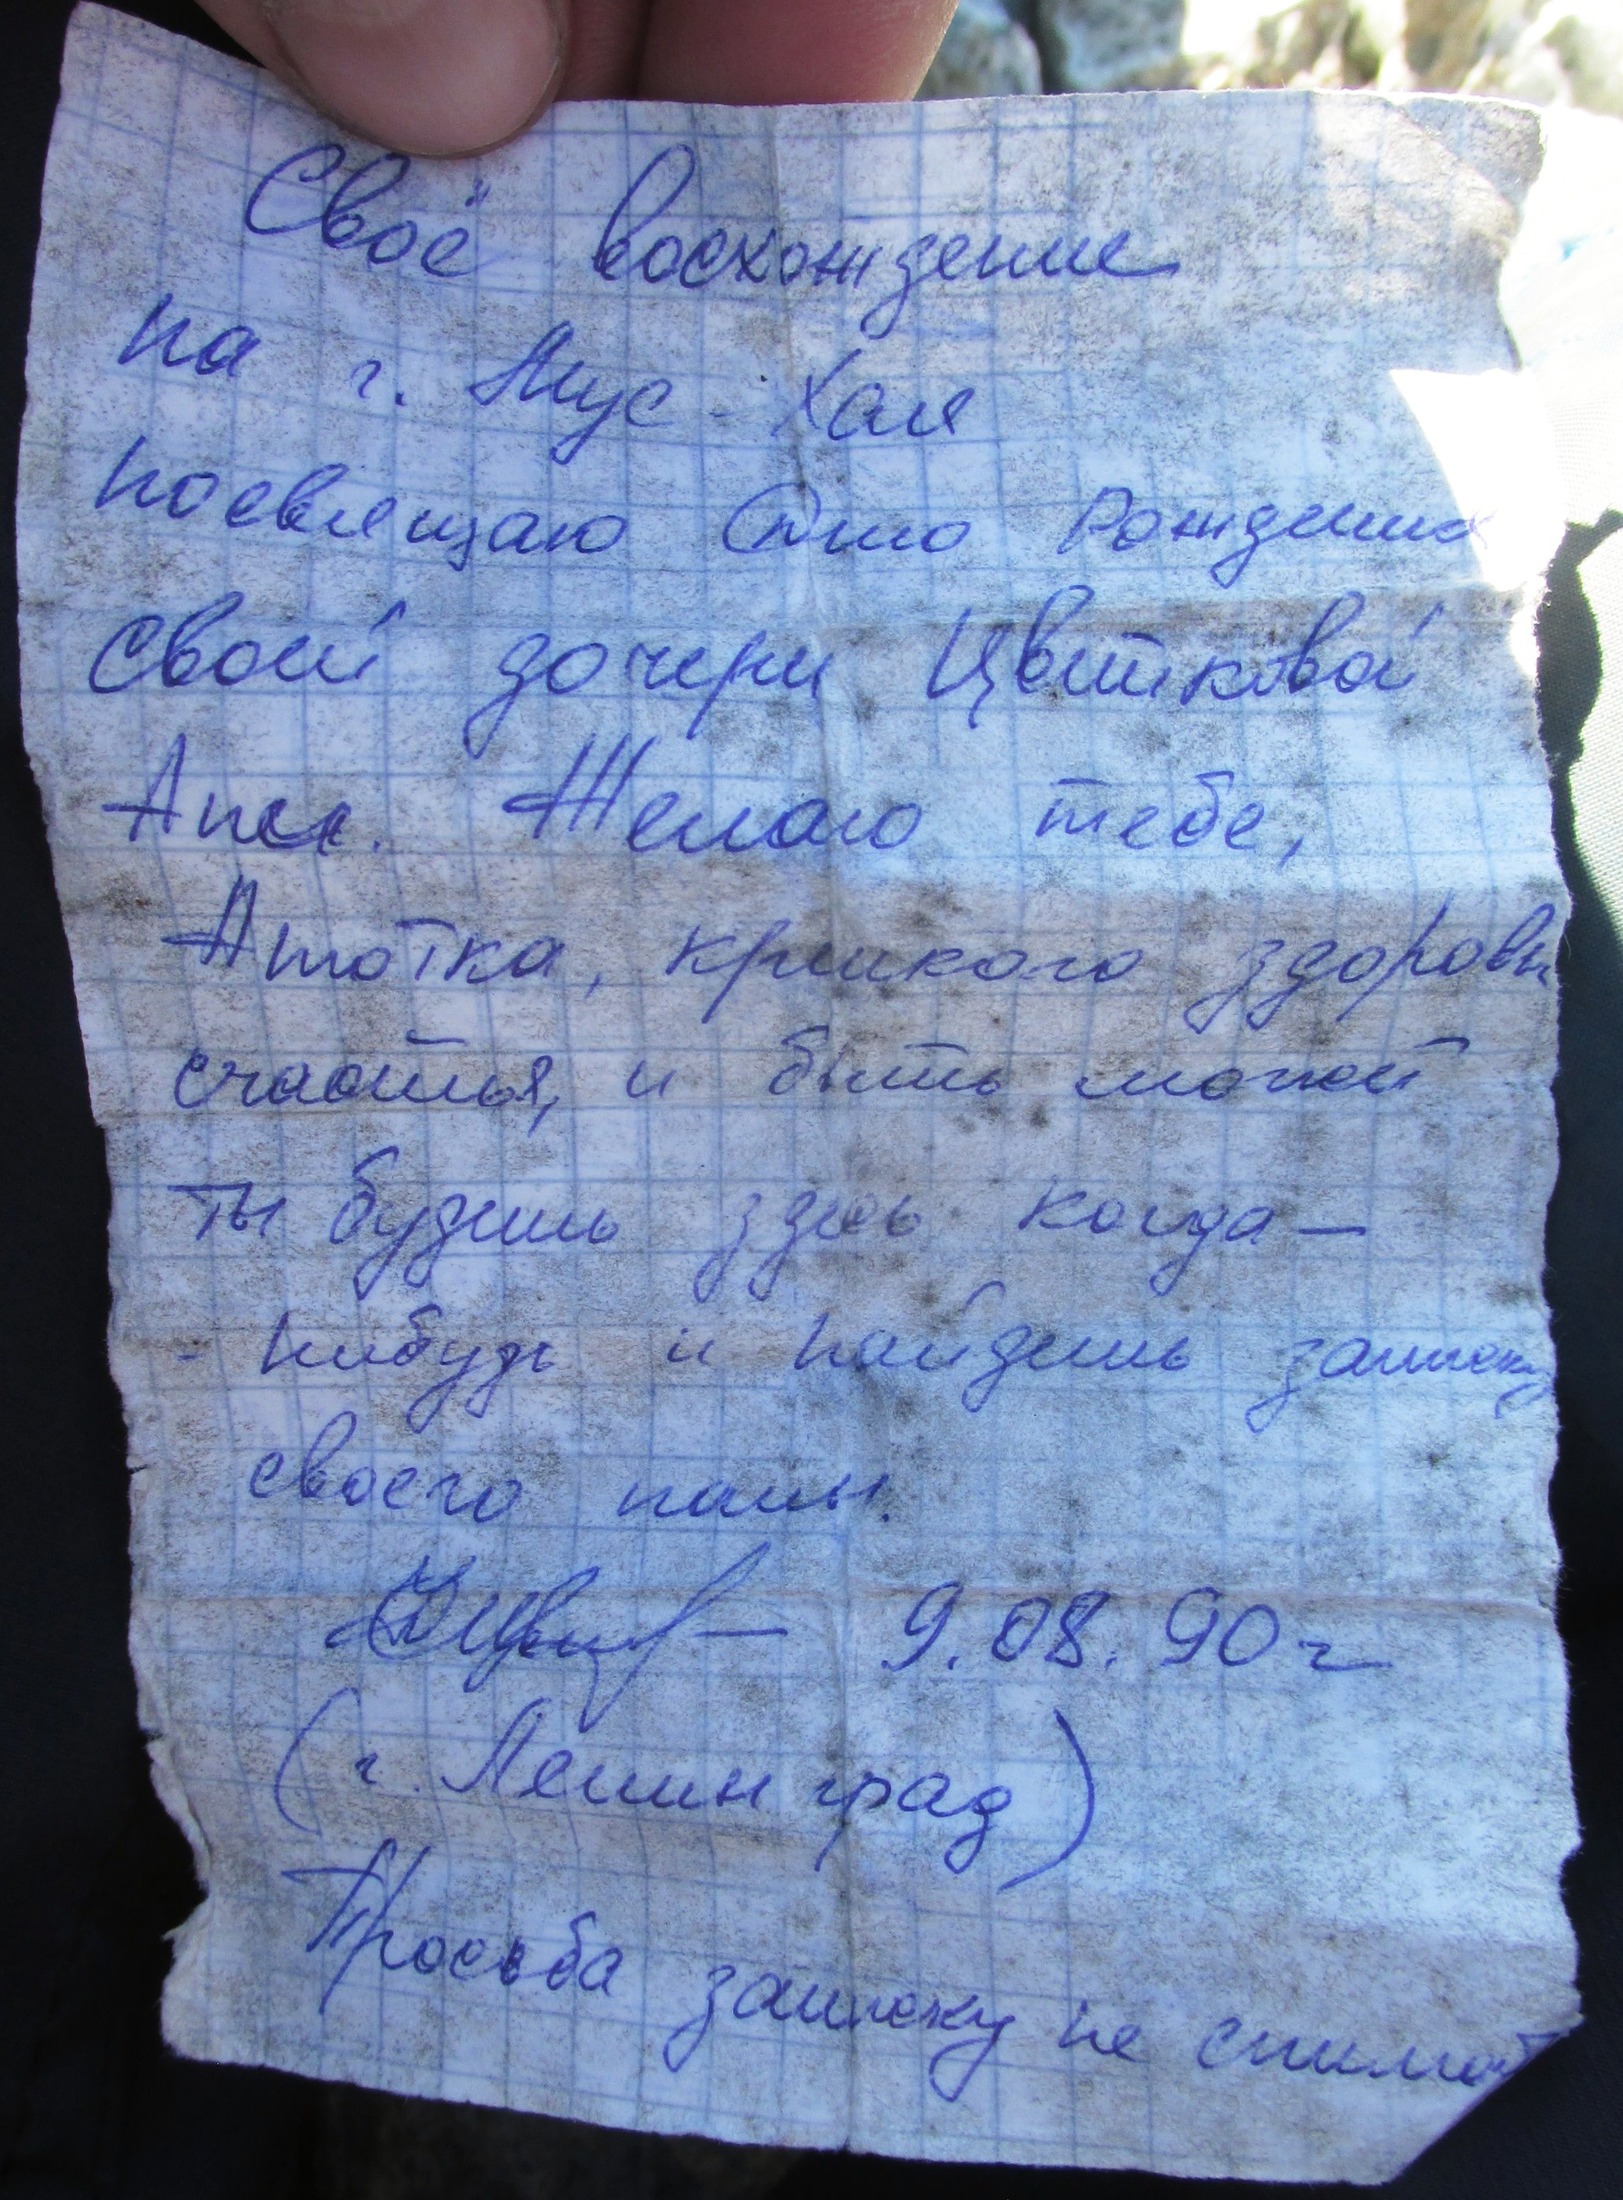 Своё восхождение
на г. Мус-Хая
посвящаю Дню Рождения
своей дочери Цветковой
Ани. Желаю тебе,
Анютка, крепкого здоровь
счастья, и быть может
ты будешь здесь когда-
- нибудь и найдешь записку
своего папы.
9.08.90 г
(г. Ленинград)
Просьба записку не снимат